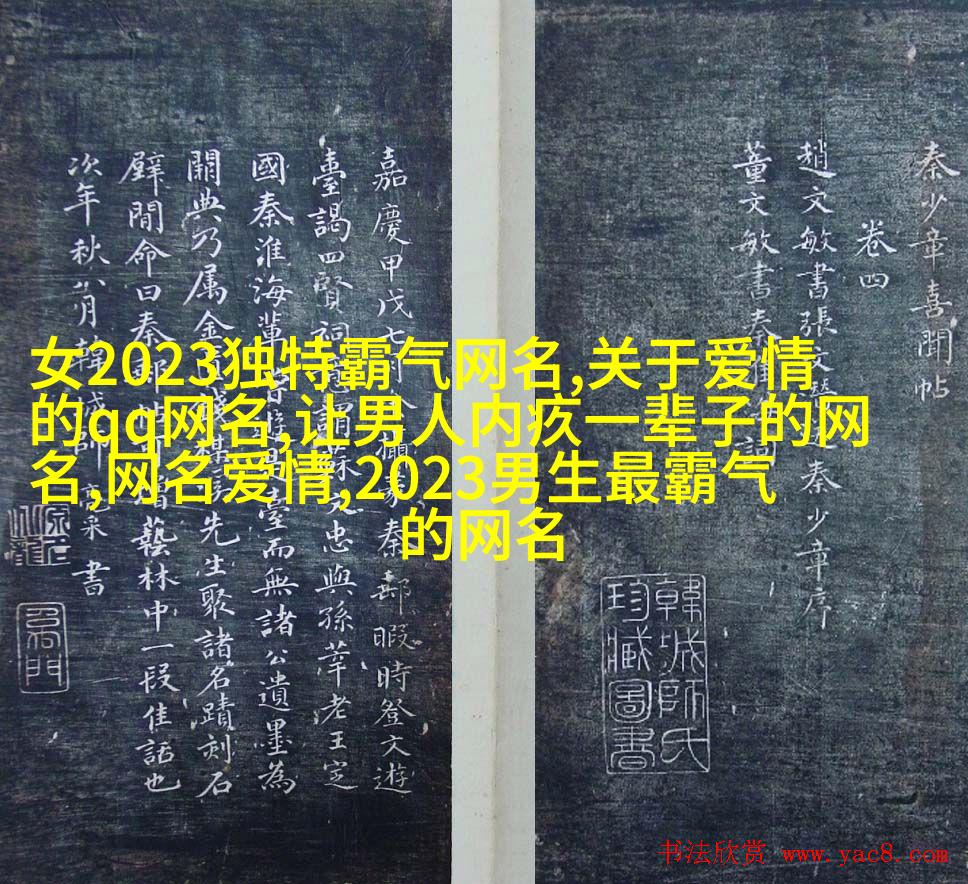 女2023独特霸气网名,关于爱情
的qq网名,让男人内疚一辈子的网
名,网名爱情,2023男生最霸气
的网名
秦少章喜聞帖
卷四
趙文敏書張文 秦少章序
董文敏書秦淮海詞
韓城師氏
珍臧圖書
嘉慶甲戊七月 攝篆秦郵暇時登文遊
臺謁四賢祠 謂蘇 忠與孫莘老王定
國秦淮海輩 臺而無諸公遺墨為
闕典乃属金 先生聚諸名蹟刻石
壁間命曰秦郵帖 增藝林中一段佳話也
次年秋八月韓城師亮采書
书法欣赏 www.yac8.com